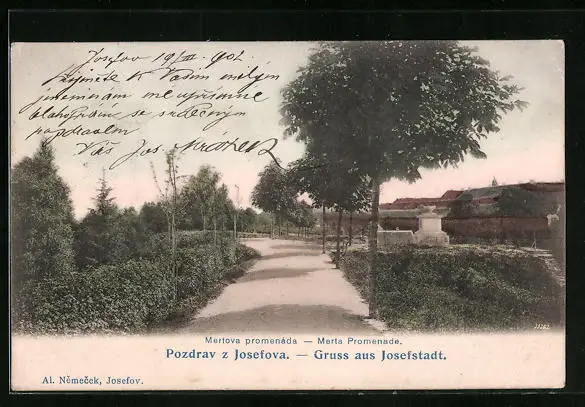 Josefov 19/III 902.
Přijměte k Vašim milým
jmeninám mé upřímné
blahopřání se srdečným
pozdravem
Váš Jos.
Mertova promenáda — Merta Promenade.
Pozdrav z Josefova. — Gruss aus Josefstadt.
Al. Němeček, Josefov.